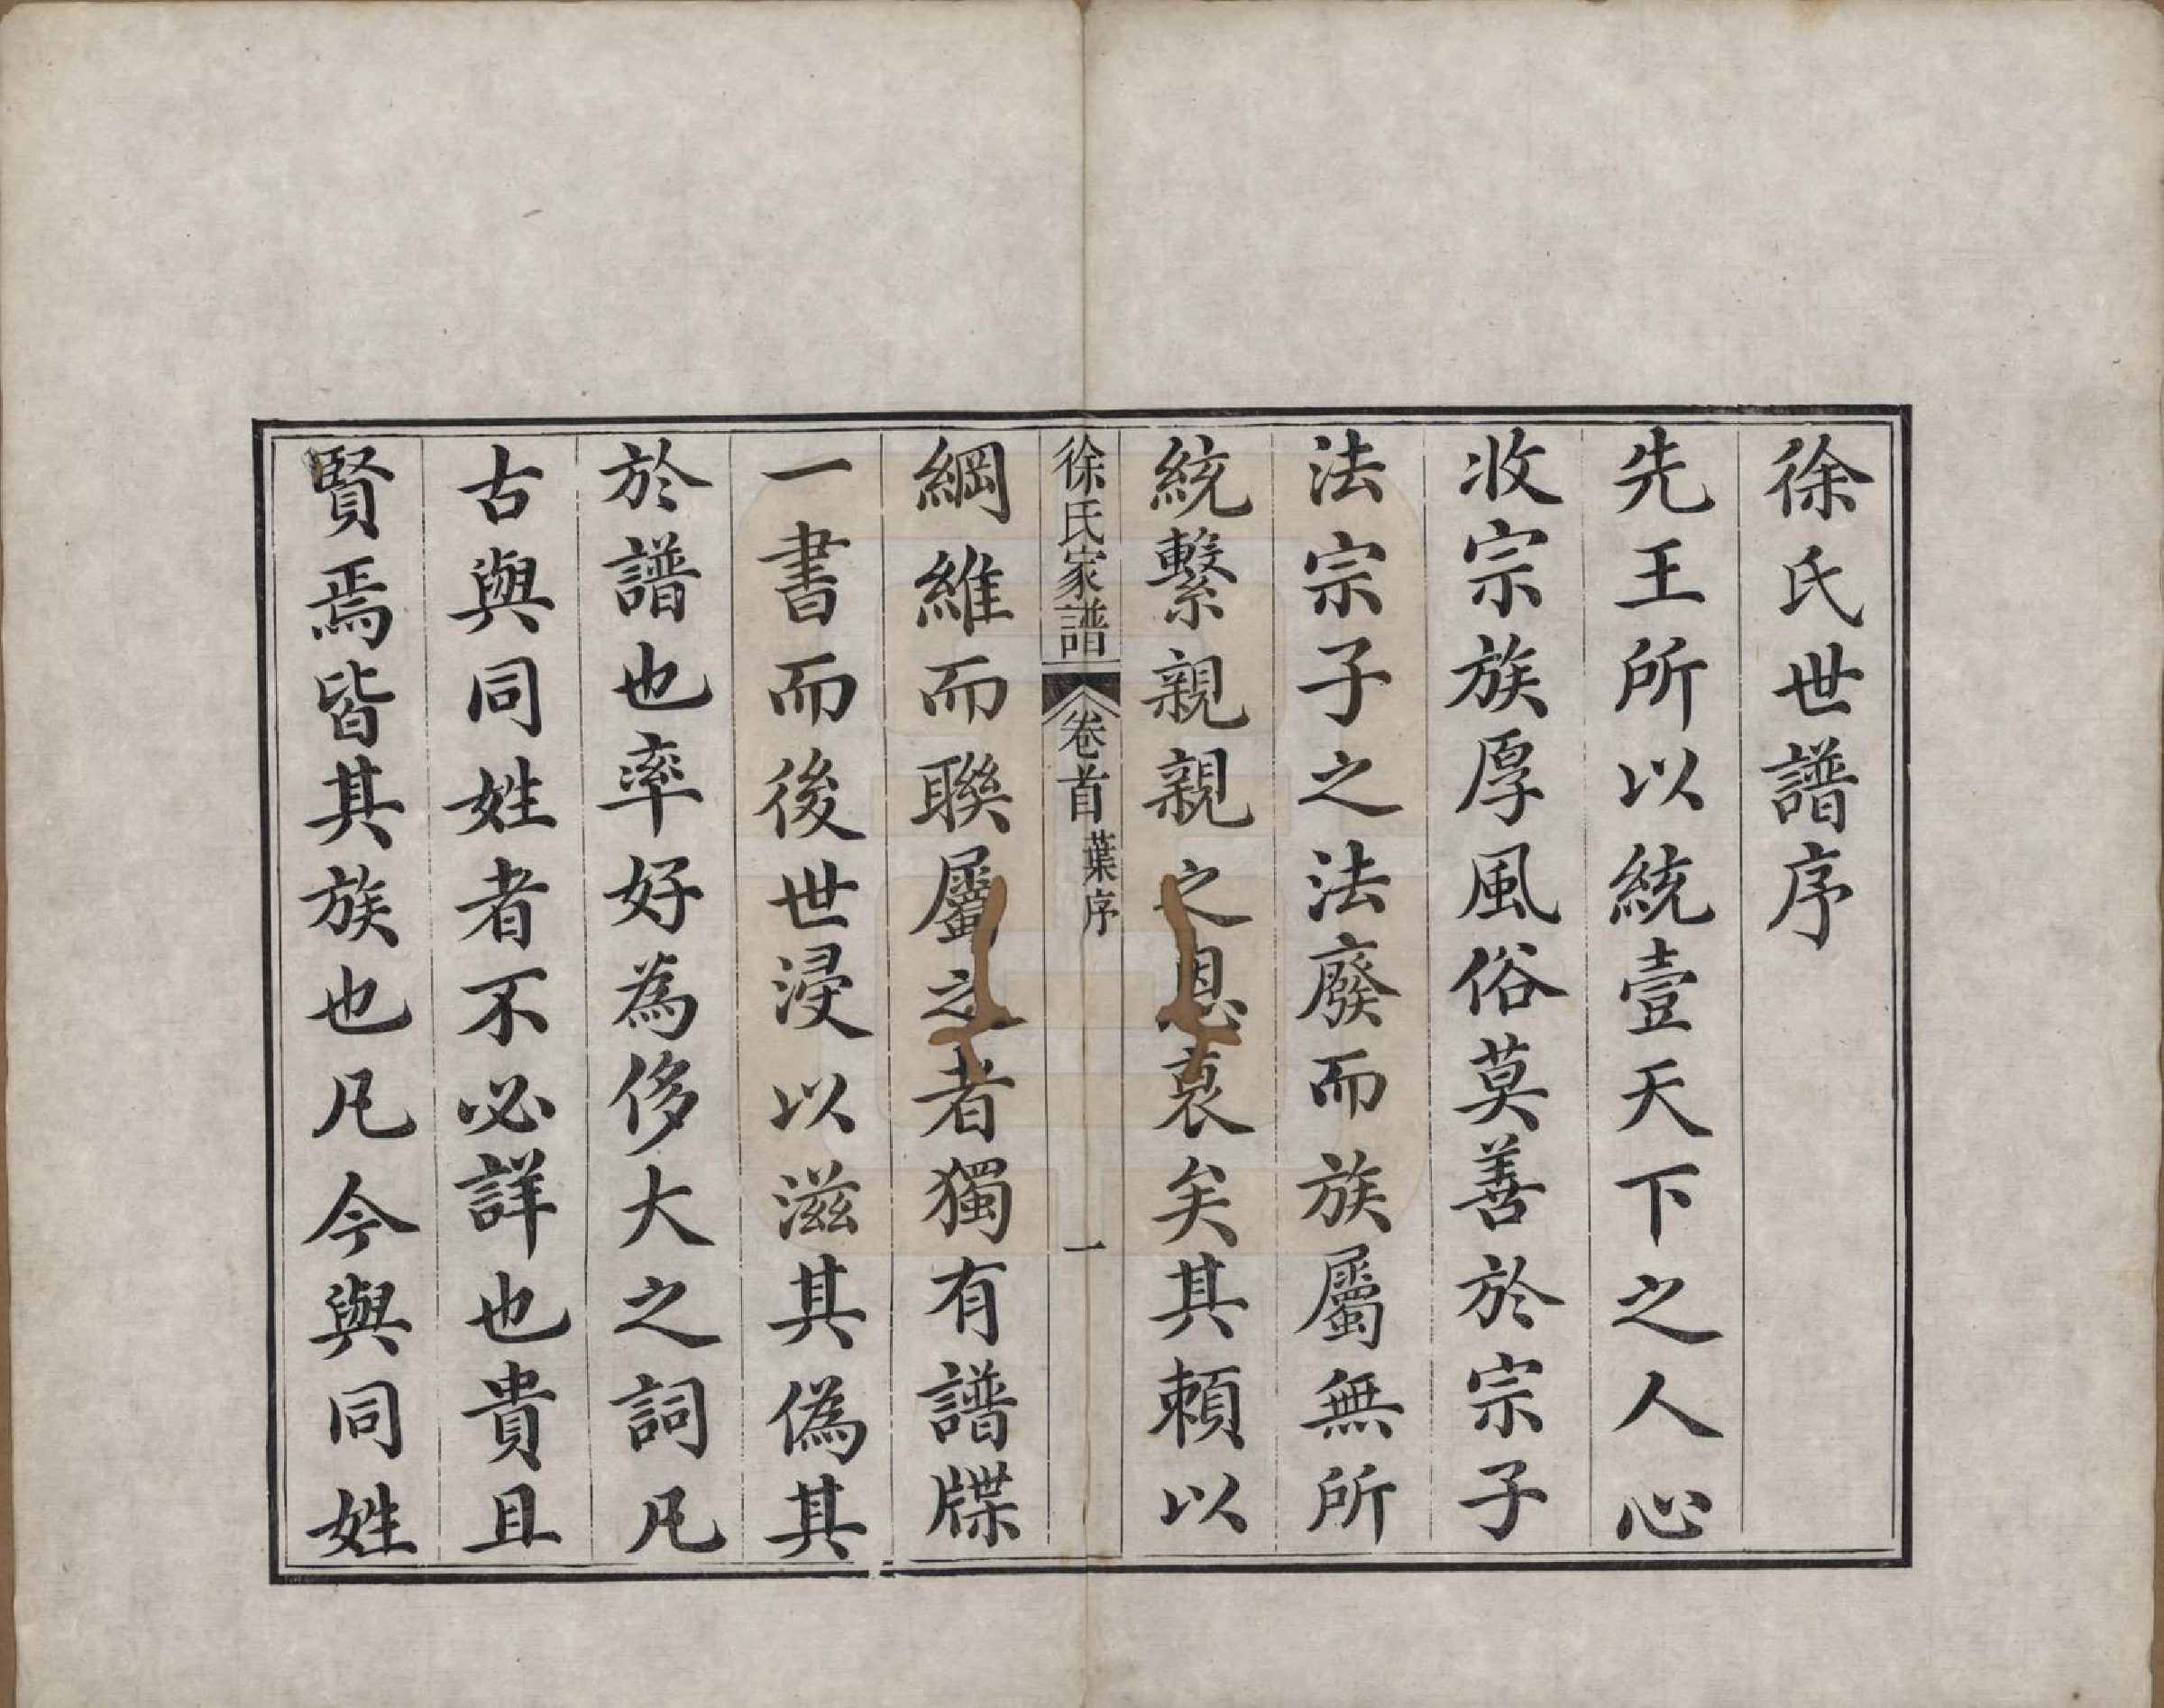 徐氏世譜序
先王所以統壹天下之人心
收宗族厚風俗莫善於宗子
法宗子之法廢而族屬無所
統繫親親之恩衰矣其頼以
徐氏家譜
卷首
葉序
一
綱維而聯屬之者獨有譜牒
一書而後世浸以滋其偽其
於譜也率好為侈大之詞凡
古與同姓者不必詳也貴且
賢焉皆其族也凡今與同姓